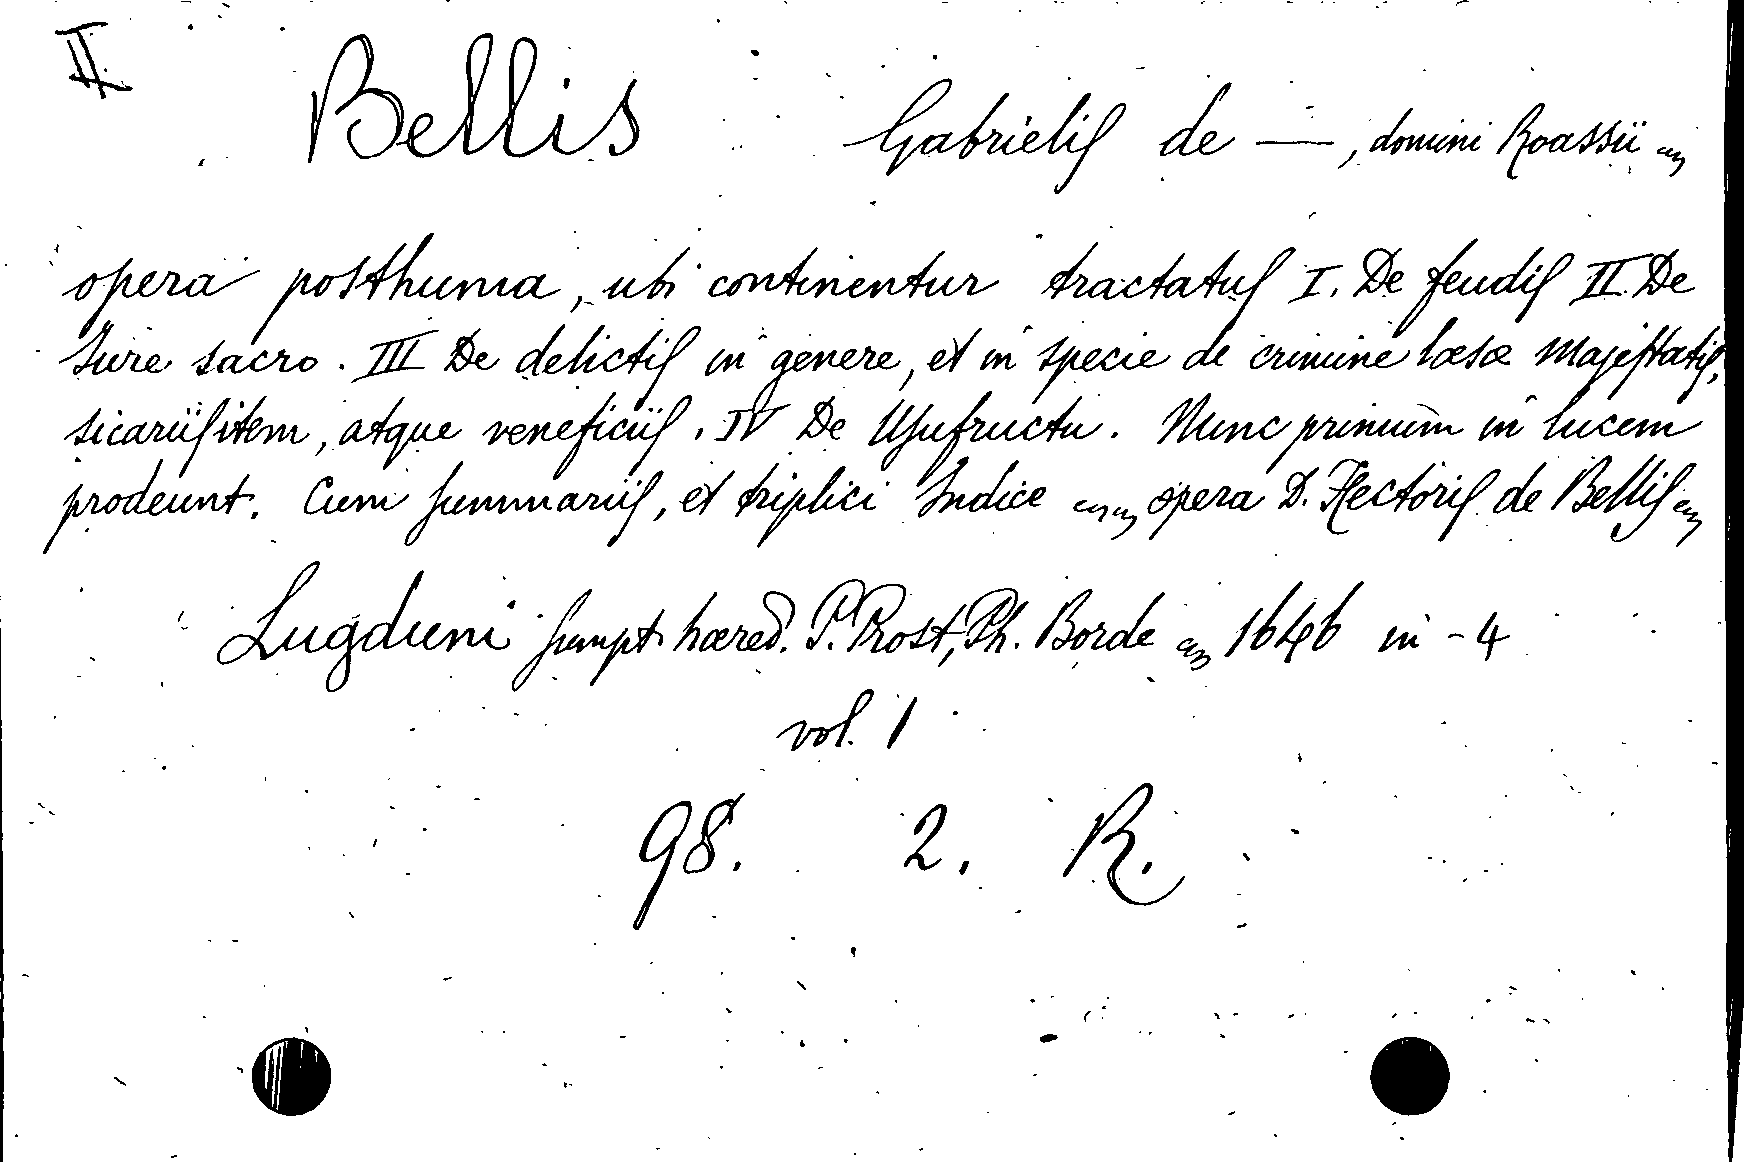 II
Bellis Gabrielis de —, domini Roassii
opera posthuma, ubi continentur tractatus I. De feudis II. De
Iure sacro. III De delictis in genere, et in specie de crimine læsæ Majestatis,
sicariis item, atque veneficiis. IV De Usufructu. Nunc primùm in lucem
prodeunt. Cum summariis, et triplici Indice opera D. Hectoris de Bellis
Lugduni sumpt. hæred. P. Prost, Ph. Borde 1646 in-4
vol. 1
98. 2. R.